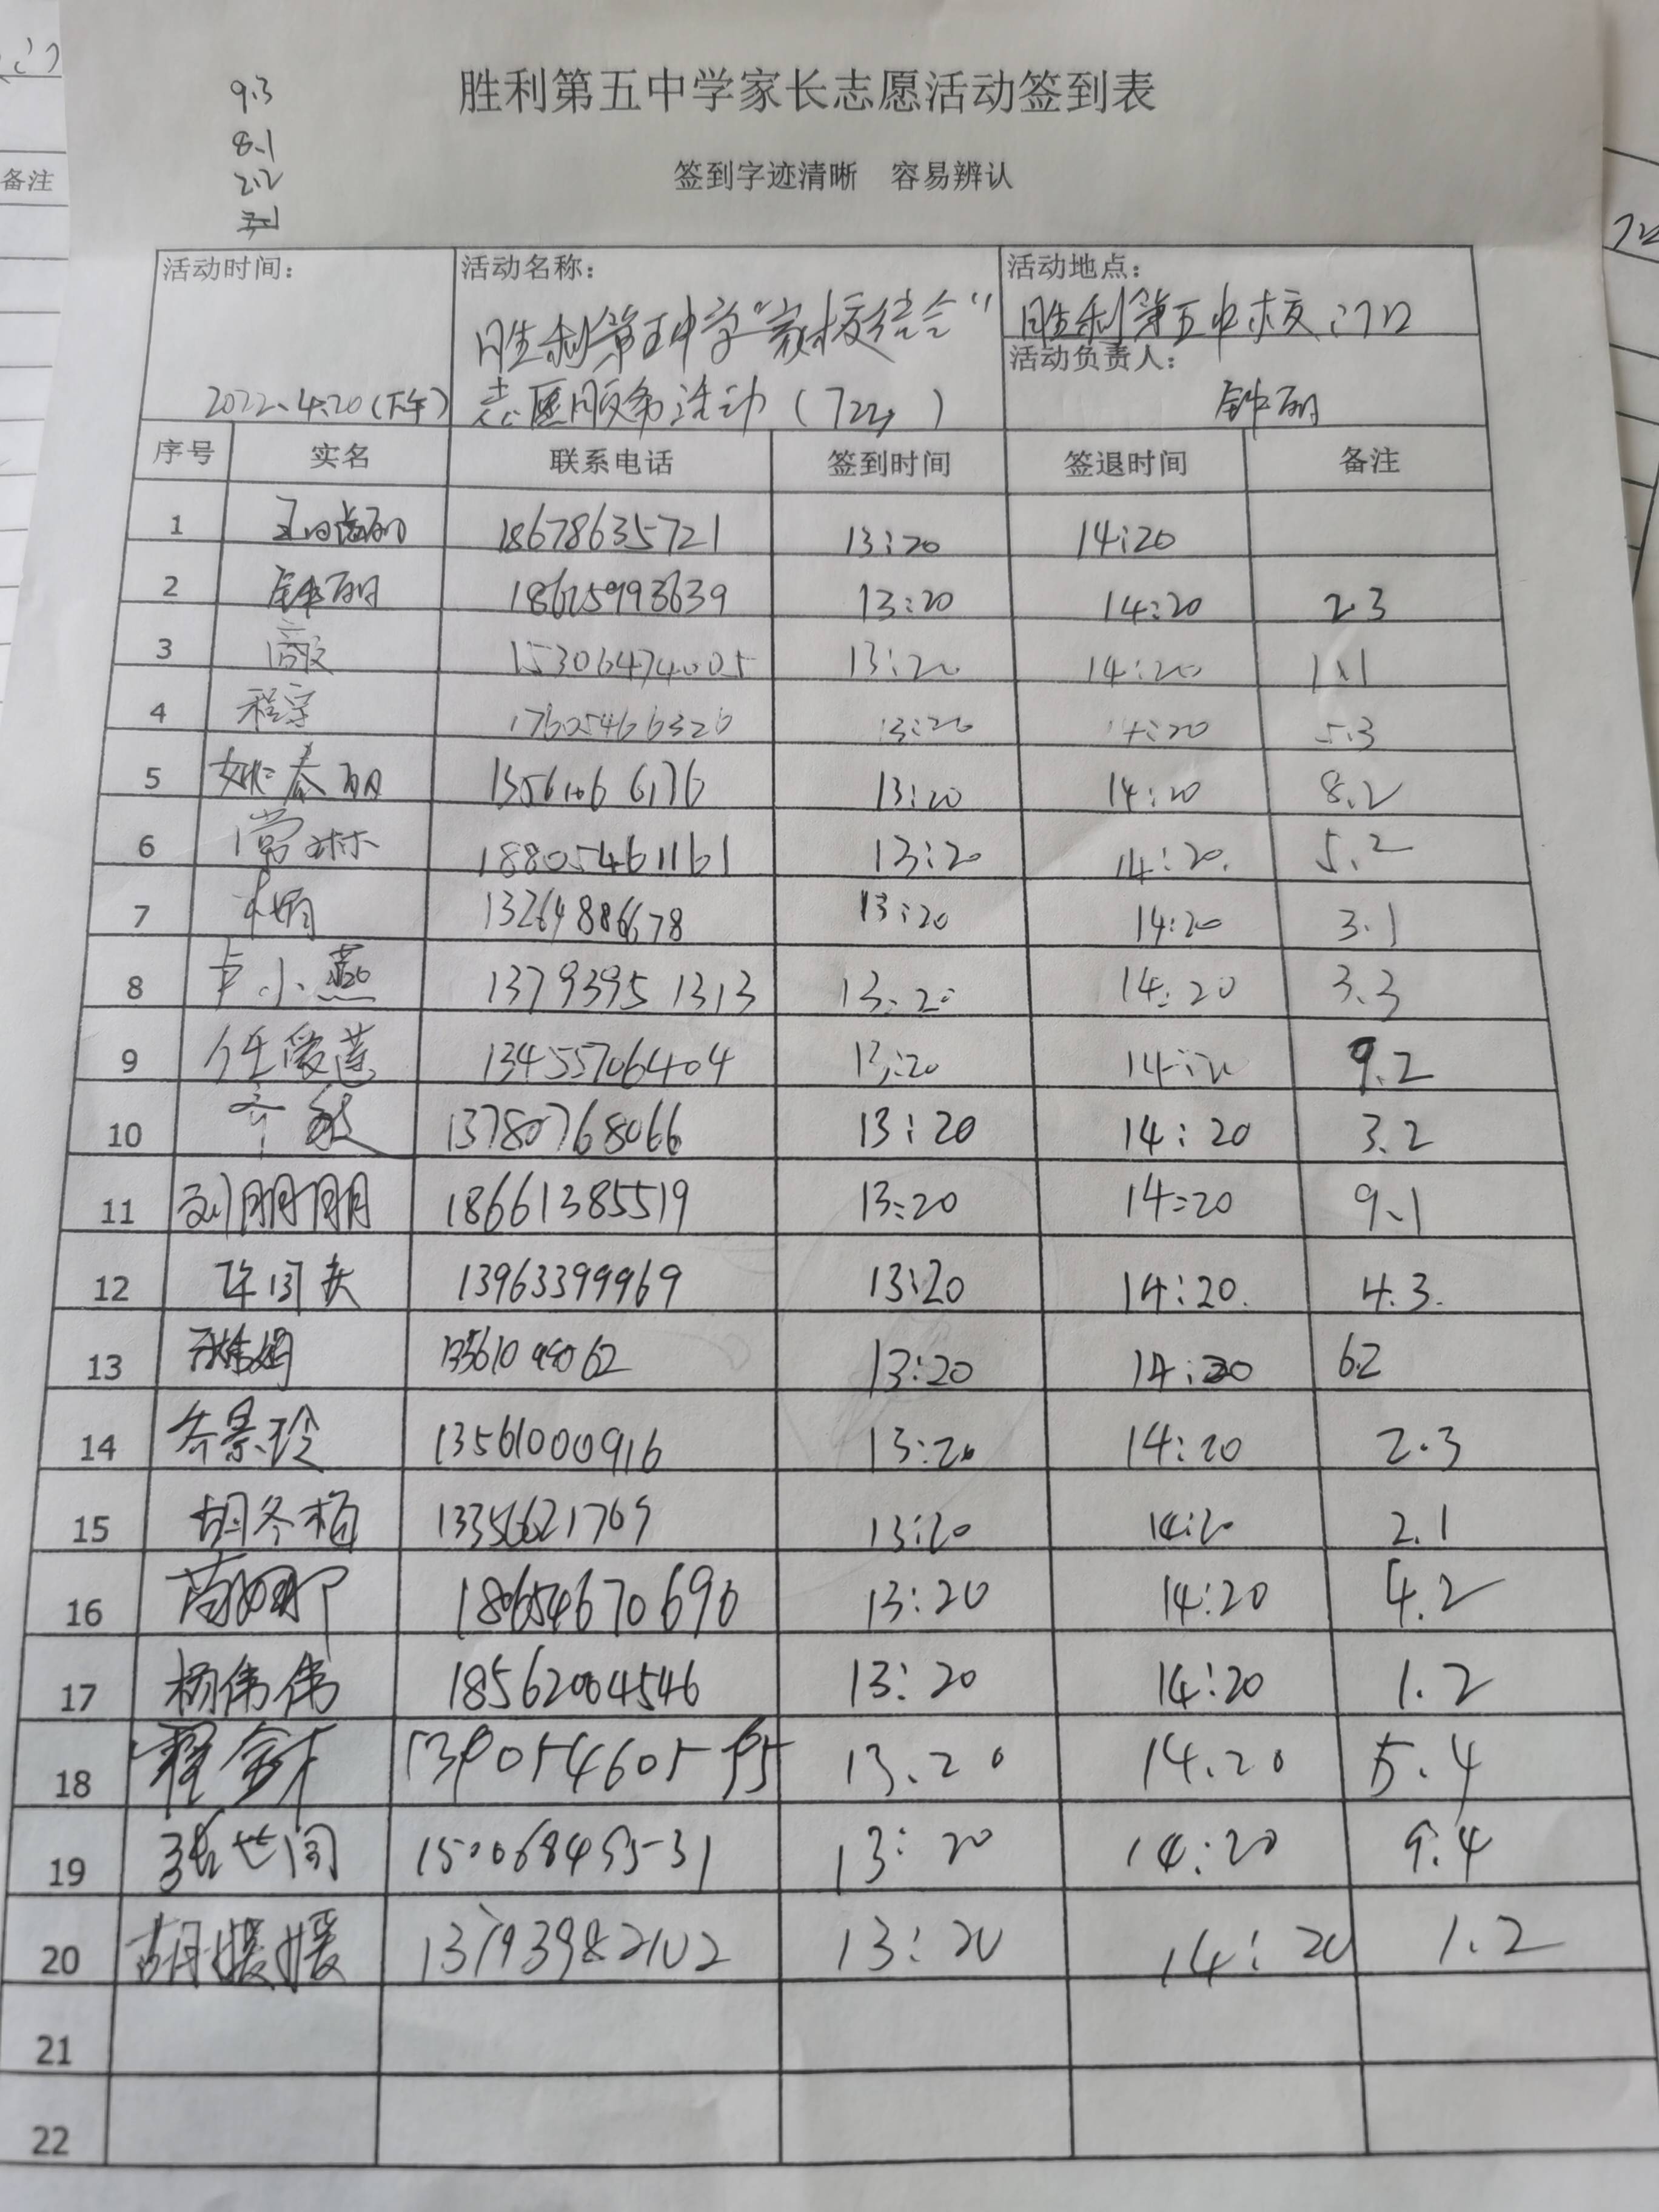 9.3
8.1
2.2
胜利第五中学家长志愿活动签到表
签到字迹清晰 容易辨认
备注
活动时间： 活动名称： 活动地点：
胜利第五中学“家校结合” 胜利第五中校门口
活动负责人：
2022.4.20(下午) 志愿服务活动（722） 钟丽
序号 实名 联系电话 签到时间 签退时间 备注
1 18678635721 13:20 14:20
2 钟丽 18625993639 13:20 14:20 2.3
3 15306474005 13:20 14:20 1.1
4 程宇 17605466326 13:20 14:20 5.3
5 姚春丽 13561066176 13:20 14:20 8.2
6 常琳 18805461161 13:20 14:20. 5.2
7 13264886678 13:20 14:20 3.1
8 卢小燕 13793951313 13:20 14:20 3.3
9 任爱莲 13455706404 13:20 14:20 9.2
10 13780768066 13:20 14:20 3.2
11 刘朋朋 18661385519 13:20 14:20 9.1
12 13963399969 13:20 14:20. 4.3.
13 13:20 14:20 6.2
14 齐景玲 13561000916 13:20 14:20 2.3
15 胡冬梅 13356621769 13:20 14:20 2.1
16 18654670690 13:20 14:20 4.2
17 杨伟伟 18562004546 13:20 14:20 1.2
18 13905460595 13.20 14.20 5.4
19 张世间 15006849531 13:20 14:20 9.4
20 胡媛媛 13793982102 13:20 14:20 1.2
21
22